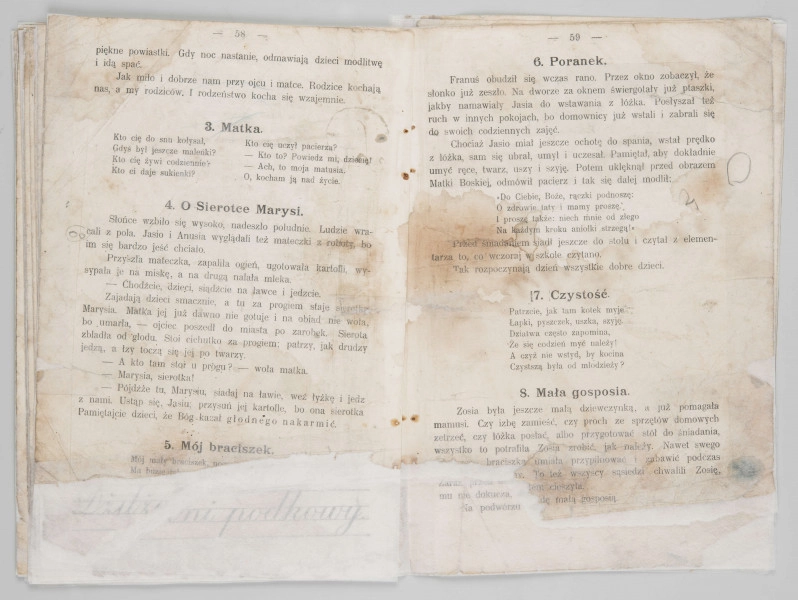 — 58 —
piękne powiastki. Gdy noc nastanie, odmawiają dzieci modlitwę
i idą spać.
Jak miło i dobrze nam przy ojcu i matce. Rodzice kochają
nas, a my rodziców. I rodzeństwo kocha się wzajemnie.
3. Matka.
Kto cię do snu kołysał,
Gdyś był jeszcze maleńki?
Kto cię żywi codziennie?
Kto ci daje sukienki?
Kto cię uczył pacierza?
— Kto to? Powiedz mi, dziecię!
— Ach, to moja matusia,
O, kocham ją nad życie.
4. O Sierotce Marysi.
Słońce wzbiło się wysoko, nadeszło południe. Ludzie wra-
cali z pola. Jasio i Anusia wyglądali też mateczki z roboty, bo
im się bardzo jeść chciało.
Przyszła mateczka, zapaliła ogień, ugotowała kartofli, wy-
sypała je na miskę, a na drugą nalała mleka.
— Chodźcie, dzieci, siądźcie na ławce i jedzcie.
Zajadają dzieci smacznie, a tu za progiem staje sierotka
Marysia. Matka jej już dawno nie gotuje i na obiad nie woła,
bo umarła, — ojciec poszedł do miasta po zarobek. Sierota
zbladła od głodu. Stoi cichutko za progiem; patrzy, jak drudzy
jedzą, a łzy toczą się jej po twarzy.
— A kto tam stoi u progu? — woła matka.
— Marysia, sierotka!
— Pójdźże tu, Marysiu, siadaj na ławie, weź łyżkę i jedz
z nami. Ustąp się, Jasiu; przysuń jej kartofle, bo ona sierotka
Pamiętajcie dzieci, że Bóg kazał głodnego nakarmić.
5. Mój braciszek.
Mój mały braciszek,
ni podkowy.
— 59 —
6. Poranek.
Franuś obudził się wczas rano. Przez okno zobaczył, że
słonko już zeszło. Na dworze za oknem świergotały już ptaszki,
jakby namawiały Jasia do wstawania z łóżka. Posłyszał też
ruch w innych pokojach, bo domownicy już wstali i zabrali się
do swoich codziennych zajęć.
Chociaż Jasio miał jeszcze ochotę do spania, wstał prędko
z łóżka, sam się ubrał, umył i uczesał. Pamiętał, aby dokładnie
umyć ręce, twarz, uszy i szyję. Potem ukląknął przed obrazem
Matki Boskiej, odmówił pacierz i tak się dalej modlił:
»Do Ciebie, Boże, rączki podnoszę:
O zdrowie taty i mamy proszę,
I proszę także: niech mnie od złego
Na każdym kroku aniołki strzegą!«
Przed śniadaniem siadł jeszcze do stołu i czytał z elemen-
tarza to, co wczoraj w szkole czytano.
Tak rozpoczynają dzień wszystkie dobre dzieci.
7. Czystość.
Patrzcie, jak tam kotek myje
Łapki, pyszczek, uszka, szyję.
Dziatwa często zapomina,
Że się codzień myć należy!
A czyż nie wstyd, by kocina
Czystszą była od młodzieży?
8. Mała gosposia.
Zosia była jeszcze małą dziewczynką, a już pomagała
mamusi. Czy izbę zamieść, czy proch ze sprzętów domowych
zetrzeć, czy łóżka posłać, albo przygotować stół do śniadania,
wszystko to potrafiła Zosia zrobić, jak należy. Nawet swego
braciszka umiała przypilnować i zabawić podczas
To też wszyscy sąsiedzi chwalili Zosię,
mu nie dokucza, się małą gosposią
Na podwórzu